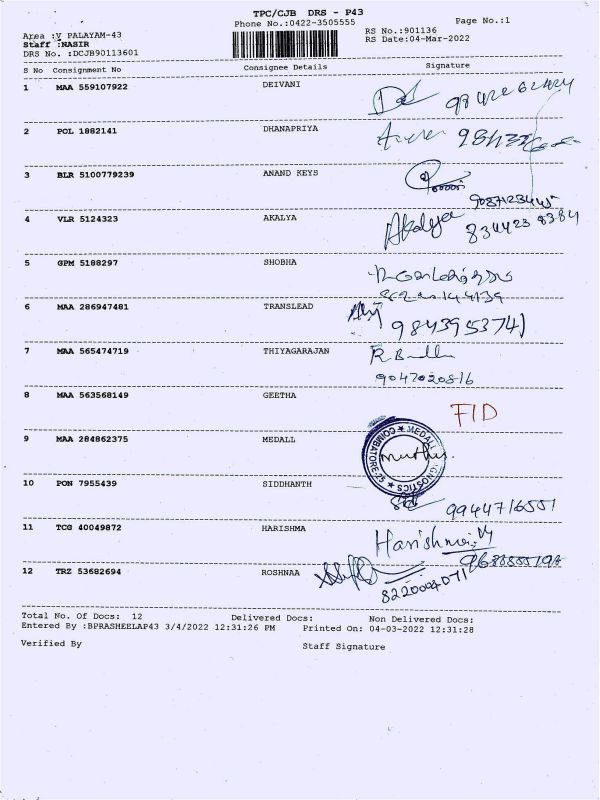 TPC/CJB DRS - P43
Phone No.:0422-3505555
Page No.:1
Area :V PALAYAM-43
RS No.:901136
Staff :NASIR
RS Date:04-Mar-2022
DRS No. :DCJB90113601
S No Consignment No Consignee Details Signature
1 MAA 559107922 DEIVANI
2 POL 1882141 DHANAPRIYA
3 BLR 5100779239 ANAND KEYS
4 VLR 5124323 AKALYA Akalya
834423 8384
5 GPM 5188297 SHOBHA
6 MAA 286947481 TRANSLEAD
7 MAA 565474719 THIYAGARAJAN
9047020816
8 MAA 563568149 GEETHA
FID
9 MAA 284862375 MEDALL
MEDALL DIAGNOSTICS COIMBATORE
muthu
10 PON 7955439 SIDDHANTH
9944716551
11 TCG 40049872 HARISHMA
Harishma
12 TRZ 53682694 ROSHNAA
8220004071
Total No. Of Docs: 12 Delivered Docs: Non Delivered Docs:
Entered By :BPRASHEELAP43 3/4/2022 12:31:26 PM Printed On: 04-03-2022 12:31:28
Verified By Staff Signature